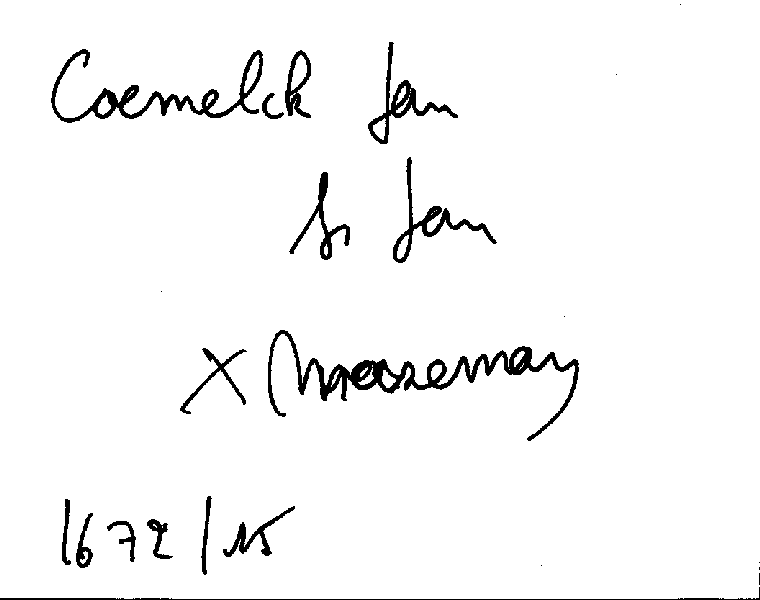 Coemelck Jan
fs Jan
X Maeszeman
1672/15